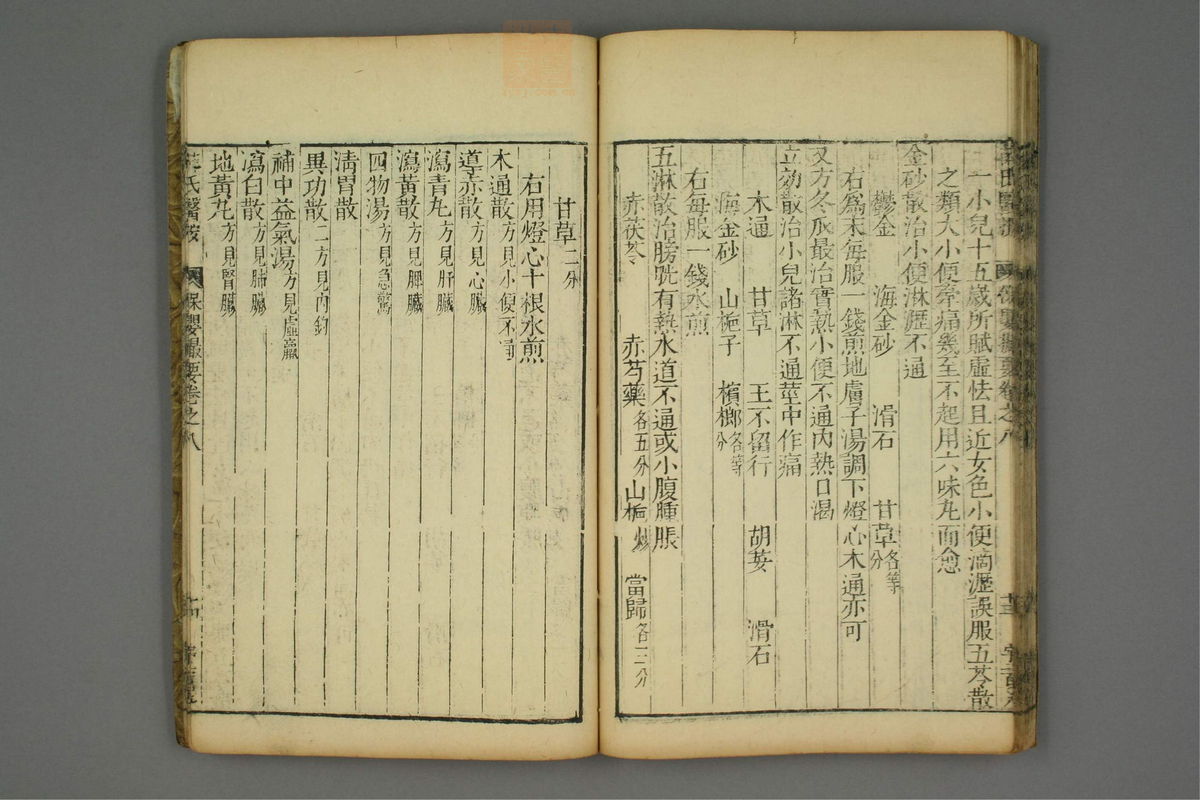 一小兒十五歲所賦虛怯且近女色小便滴瀝誤服五苓散
之類大小便牽痛幾至不起用六味丸而愈
金砂散治小便淋瀝不通
鬱金 海金砂 滑石 甘草各等分
右爲末每服一錢煎地膚子湯調下燈心木通亦可
又方冬瓜最治實熱小便不通內熱口渴
立効散治小兒諸淋不通莖中作痛
木通 甘草 王不留行 胡荽 滑石
海金砂 山梔子 檳榔各等分
右每服一錢水煎
五淋散治膀胱有熱水道不通或小腹腫脹
赤茯苓 赤芍藥各五分 山梔炒 當歸各三分
甘草二分
右用燈心十根水煎
木通散方見小便不通
導赤散方見心臟
瀉青丸方見肝臟
瀉黃散方見脾臟
四物湯方見急驚
清胃散
異功散二方見內釣
補中益氣湯方見虛羸
瀉白散方見肺臟
地黃丸方見腎臟
薛氏醫案 保嬰撮要卷之八